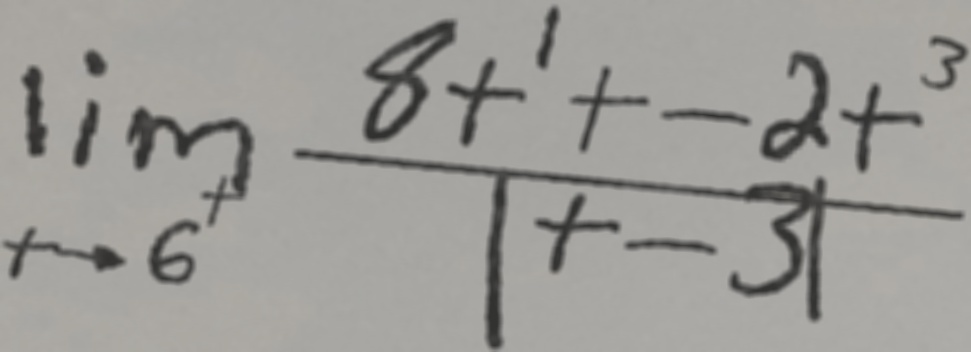 \lim_{t \to 6^+} \frac{8t^1 + -2t^3}{|t-3|}